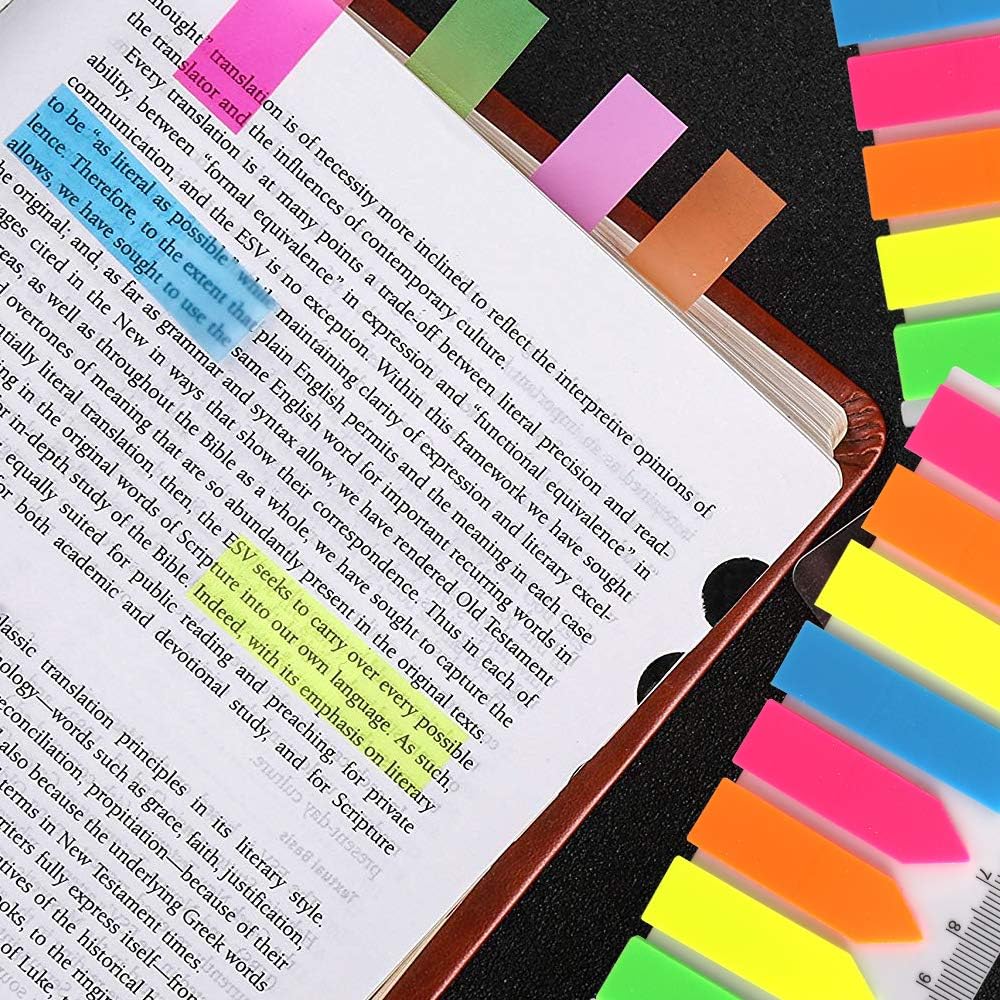 hought" translation is of necessity more inclined to reflect the interpretive opinions of
the translator and the influences of contemporary culture.
Every translation is at many points a trade-off between literal precision and read-
ability, between "formal equivalence" in expression and "functional equivalence" in
communication, and the ESV is no exception. Within this framework we have sought
to be "as literal as possible" whil maintaining clarity of expression and literary excel-
lence. Therefore, to the extent that plain English permits and the meaning in each case
allows, we have sought to use the same English word for important recurring words in
he original; and, as far as grammar and syntax allow, we have rendered Old Testament
ages cited in the New in ways that show their correspondence. Thus in each of
reas, as well as throughout the Bible as a whole, we have sought to capture the
d overtones of meaning that are so abundantly present in the original texts.
ntially literal translation, then, the ESV seeks to carry over every possible
ing in the original words of Scripture into our own language. As such,
r in-depth study of the Bible. Indeed, with its emphasis on literary
equally suited for public reading and preaching, for private
or both academic and devotional study, and for Scripture
lassic translation principles in its literary style
ology—words such as grace, faith, justification,
econciliation, propitiation—because of their
also because the underlying Greek words
terms in New Testament times.
riters fully express itself—from
tives of the historical
oks, to the ringing
of Luke,
7
8
9